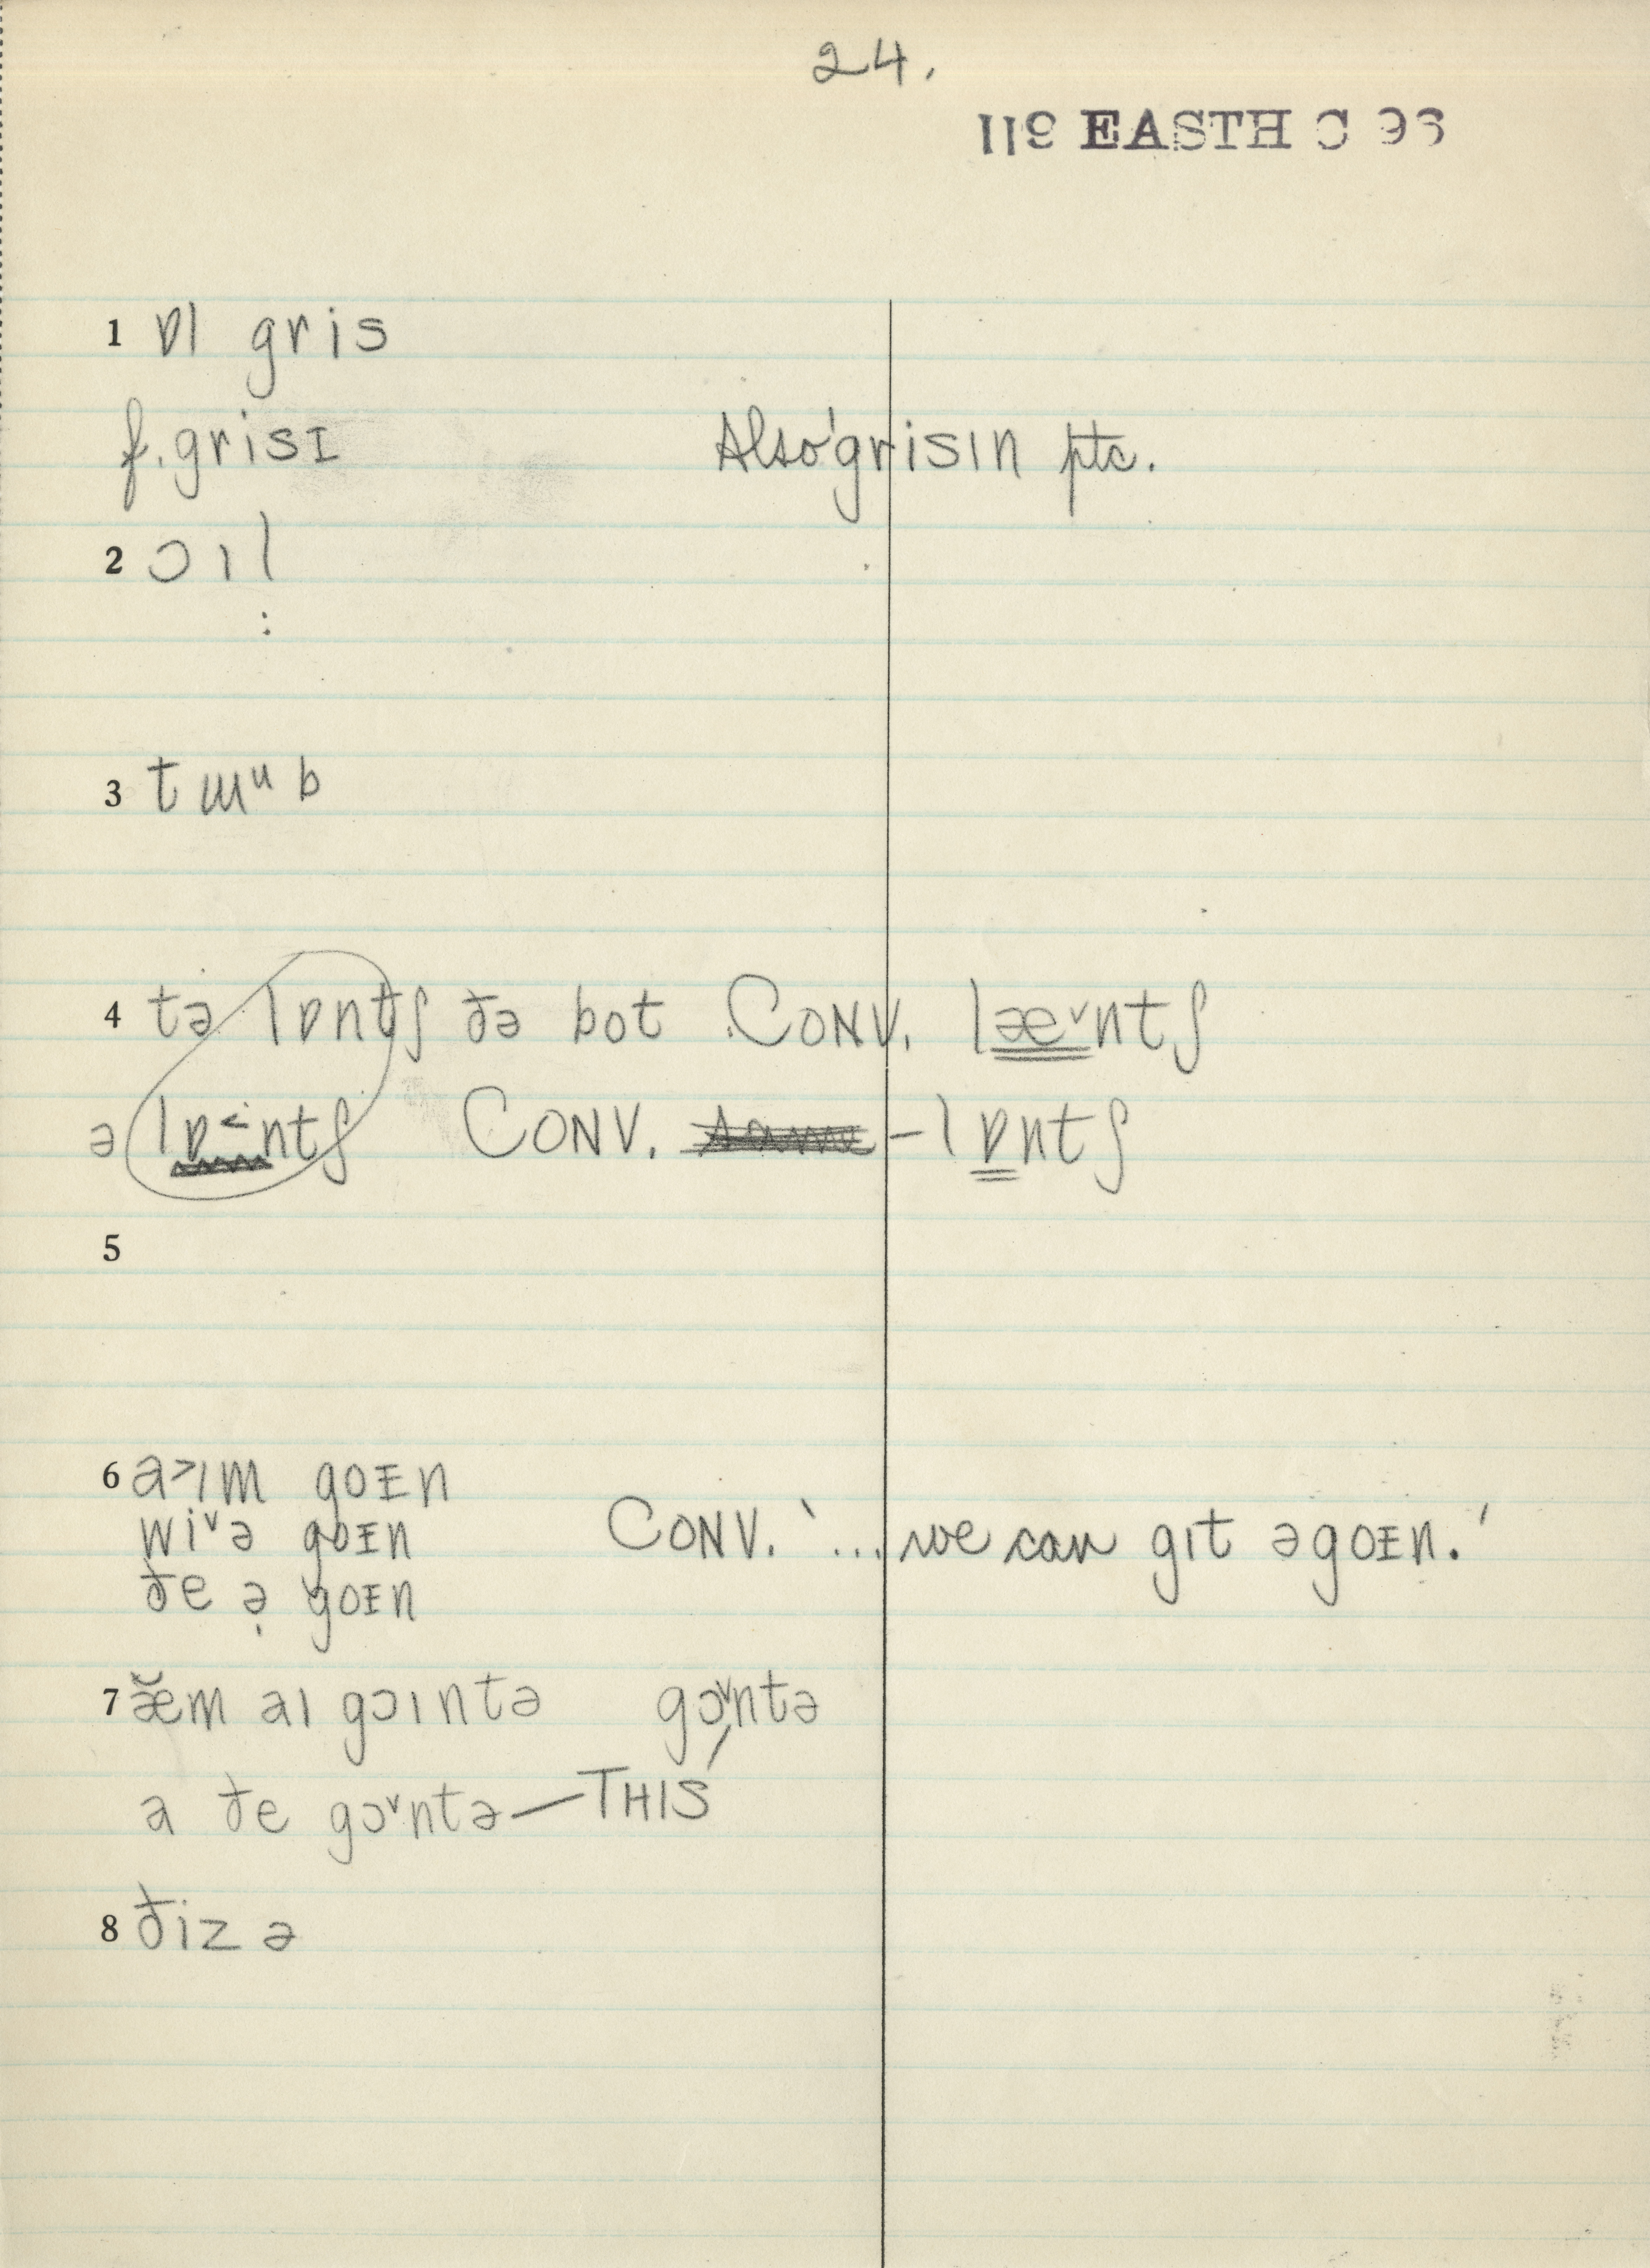 24.
119 EASTH C 96
1 ɒl gris
f. grisɪ Also 'grisın ptc.
2 ɔıl
:
3 tɯᵘb
4 tə lɒntʃ ðə bot CONV. læ˅ntʃ
ə lɒ˂ntʃ CONV. – lɒntʃ
5
6 a˃ım goɪn
wi˅ə goɪn CONV. '...we can gıt əgoɪn.'
ðe ə̣ goɪn
7 æ̆m aı gɔıntə gɔ˅ntə
a ðe gɔ˅ntə — THIS
8 ðiz ə